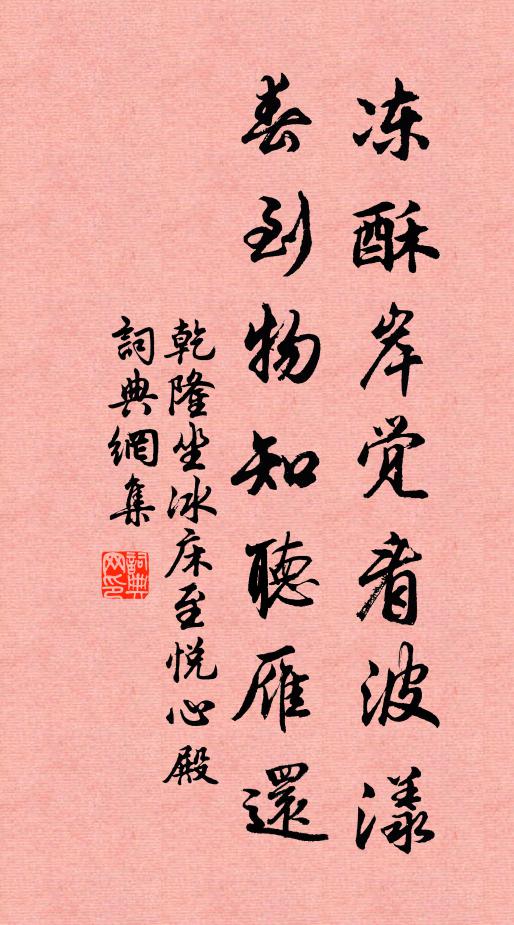 冻酥岸觉看波漾
春到物知聽雁還
乾隆坐冰床至悦心殿
詞典網集
詞典
网印